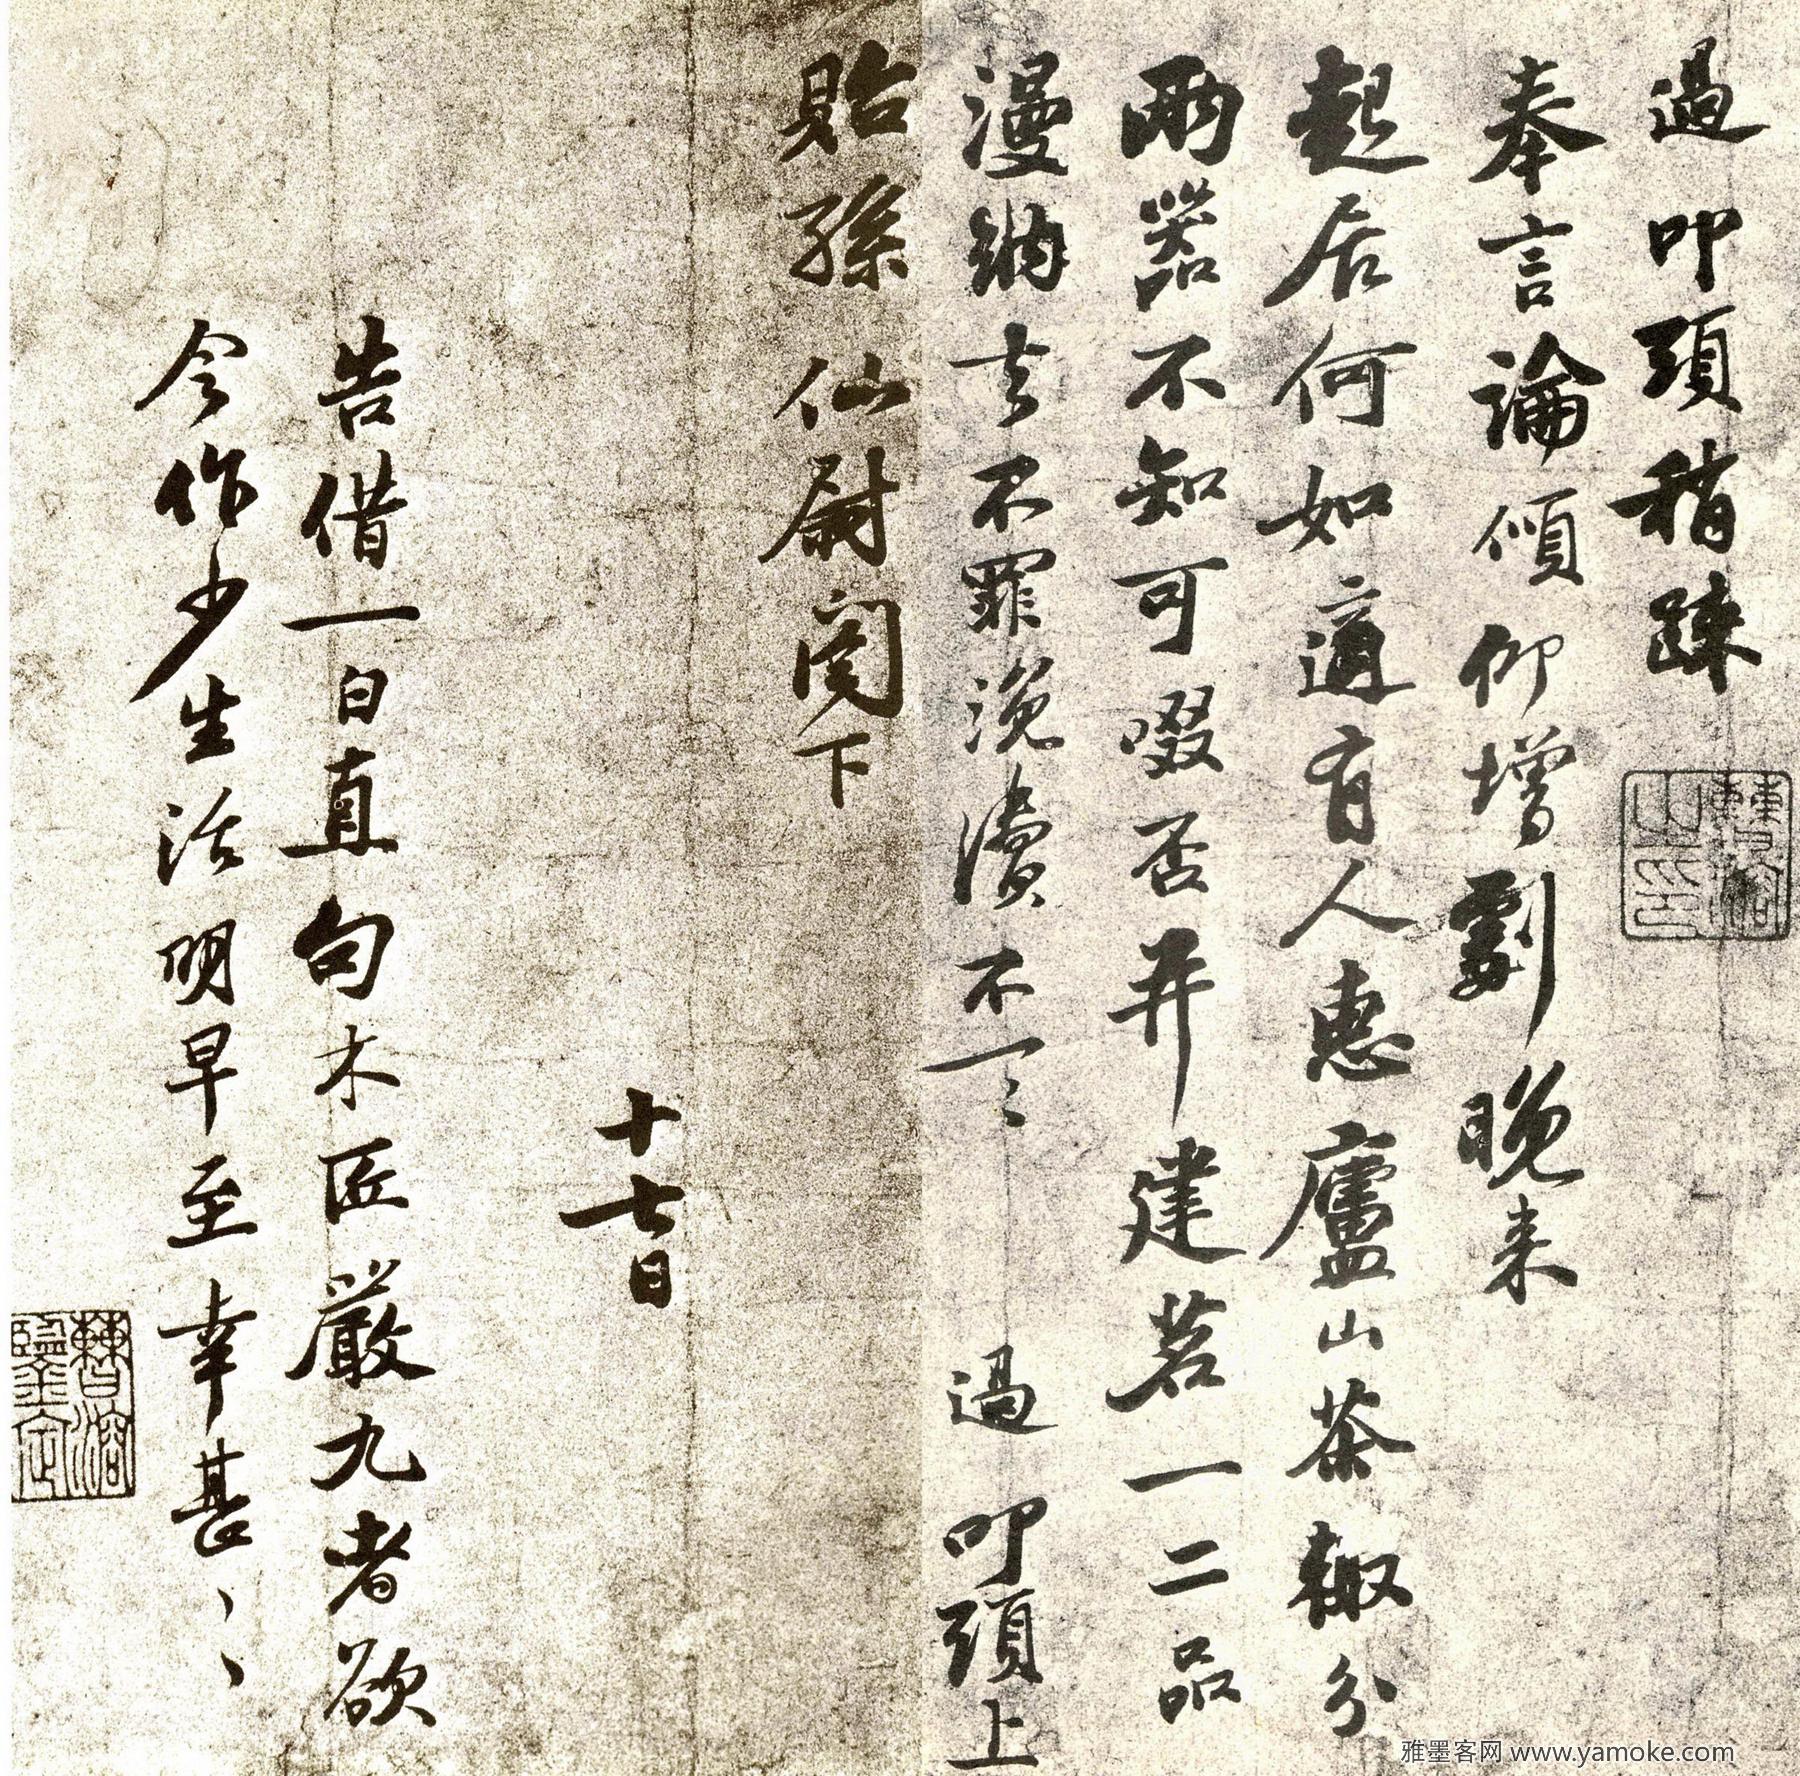 過叩頭稍疎
奉言論傾仰增劇晚來
起居何如適有人惠廬山茶輙分
兩器不知可啜否并建茗一二品
漫納去不罪浼瀆不一一
過 叩頭上
貽孫仙尉閣下
十七日
告借一白直句木匠嚴九者欲
令作少生活明早至幸甚〻〻
雅墨客网 www.yamoke.com